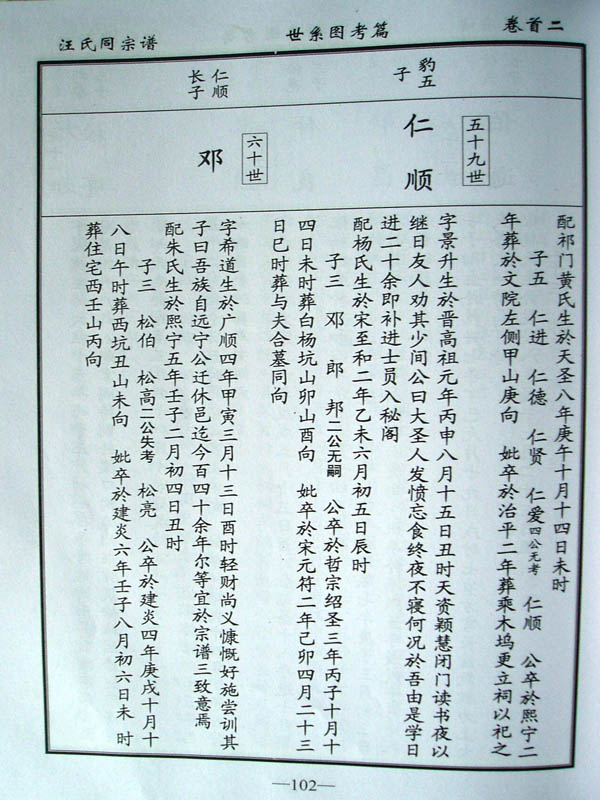 卷首二
世系图考篇
汪氏同宗谱
豹五
子
五十九世
仁顺
仁顺
长子
六十世
邓
配祁门黄氏生於天圣八年庚午十月十四日未时
子五 仁进 仁德 仁贤 仁爱四公无考 仁顺 公卒於熙宁二
年葬於文院左侧甲山庚向 妣卒於治平二年葬乘木坞更立祠以祀之
字景升生於晋高祖元年丙申八月十五日丑时天资颖慧闭门读书夜以
继日友人劝其少间公曰大圣人发愤忘食终夜不寝何况於吾由是学日
进二十余即补进士员入秘阁
配杨氏生於宋至和二年乙未六月初五日辰时
子三 邓 郎 邦二公无嗣 公卒於哲宗绍圣三年丙子十月十
四日未时葬白杨坑山卯山酉向 妣卒於宋元符二年己卯四月二十三
日巳时葬与夫合墓同向
字希道生於广顺四年甲寅三月十三日酉时轻财尚义慷慨好施尝训其
子曰吾族自远宁公迁休邑迄今百四十余年尔等宜於宗谱三致意焉
配朱氏生於熙宁五年壬子二月初四日丑时
子三 松伯 松高二公失考 松亮 公卒於建炎四年庚戌十月十
八日午时葬西坑丑山未向 妣卒於建炎六年壬子八月初六日未时
葬住宅西壬山丙向
—102—